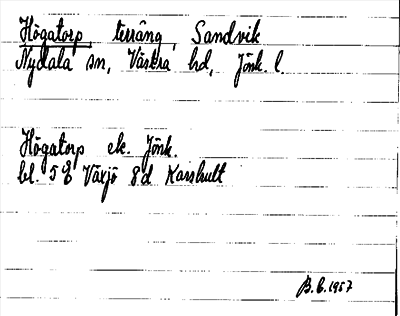 Högatorp, terräng, Sandvik
Nydala sn, Västra hd, Jönk. l.
Högatorp ek. Jönk.
bl. 5E Växjö 8d Karshult
B.E. 1957